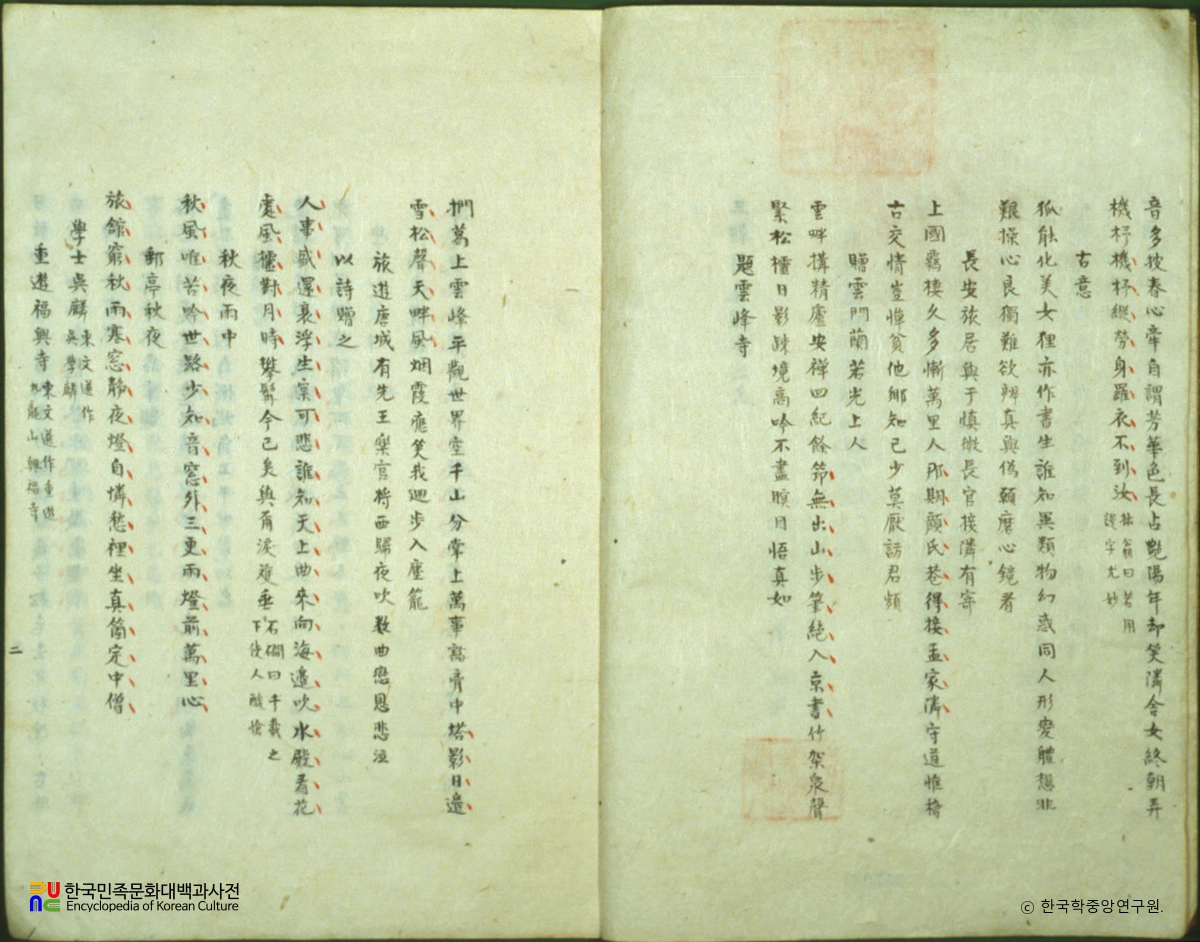 音多披春心牽自謂芳華色長占艶陽年却笑隣舍女終朝弄
機杼機杼縱勞身羅衣不到汝
翁曰若用
字尤妙
古意
狐能化美女狸亦作書生誰知異類物幻惑同人形變體想非
艱操心良獨難欲辨真與偽願磨心鏡看
長安旅居與于慎微長官接隣有寄
上國羈棲久多慚萬里人那期顔氏巷得接孟家隣守道惟稽
古交情豈憚貧他鄕知己少莫厭訪君頻
贈雲門蘭若光上人
雲畔搆精廬安禪四紀餘筇無出山步筆絶入京書竹架泉聲
緊松櫺日影踈境高吟不盡瞑目悟真如
題雲峰寺
捫葛上雲峰平觀世界空千山分掌上萬事豁胷中塔影日邊
雪松聲天畔風烟霞應笑我廻步入塵籠
旅遊唐城有先王樂官將西歸夜吹數曲戀恩悲泣
以詩贈之
人事盛還衰浮生寔可悲誰知天上曲來向海邊吹水殿看花
處風欞對月時攀髯今已矣與爾淚雙垂
石㵎曰千載之
下使人酸愴
秋夜雨中
秋風唯苦吟世路少知音窓外三更雨燈前萬里心
郵亭秋夜
旅舘窮秋雨寒窓静夜燈自憐愁裡坐真箇定中僧
學士吳麟
東文選作
吳學麟
重遊福興寺
東文選作重遊
九龍山興福寺
二
한국민족문화대백과사전
Encyclopedia of Korean Culture
© 한국학중앙연구원.